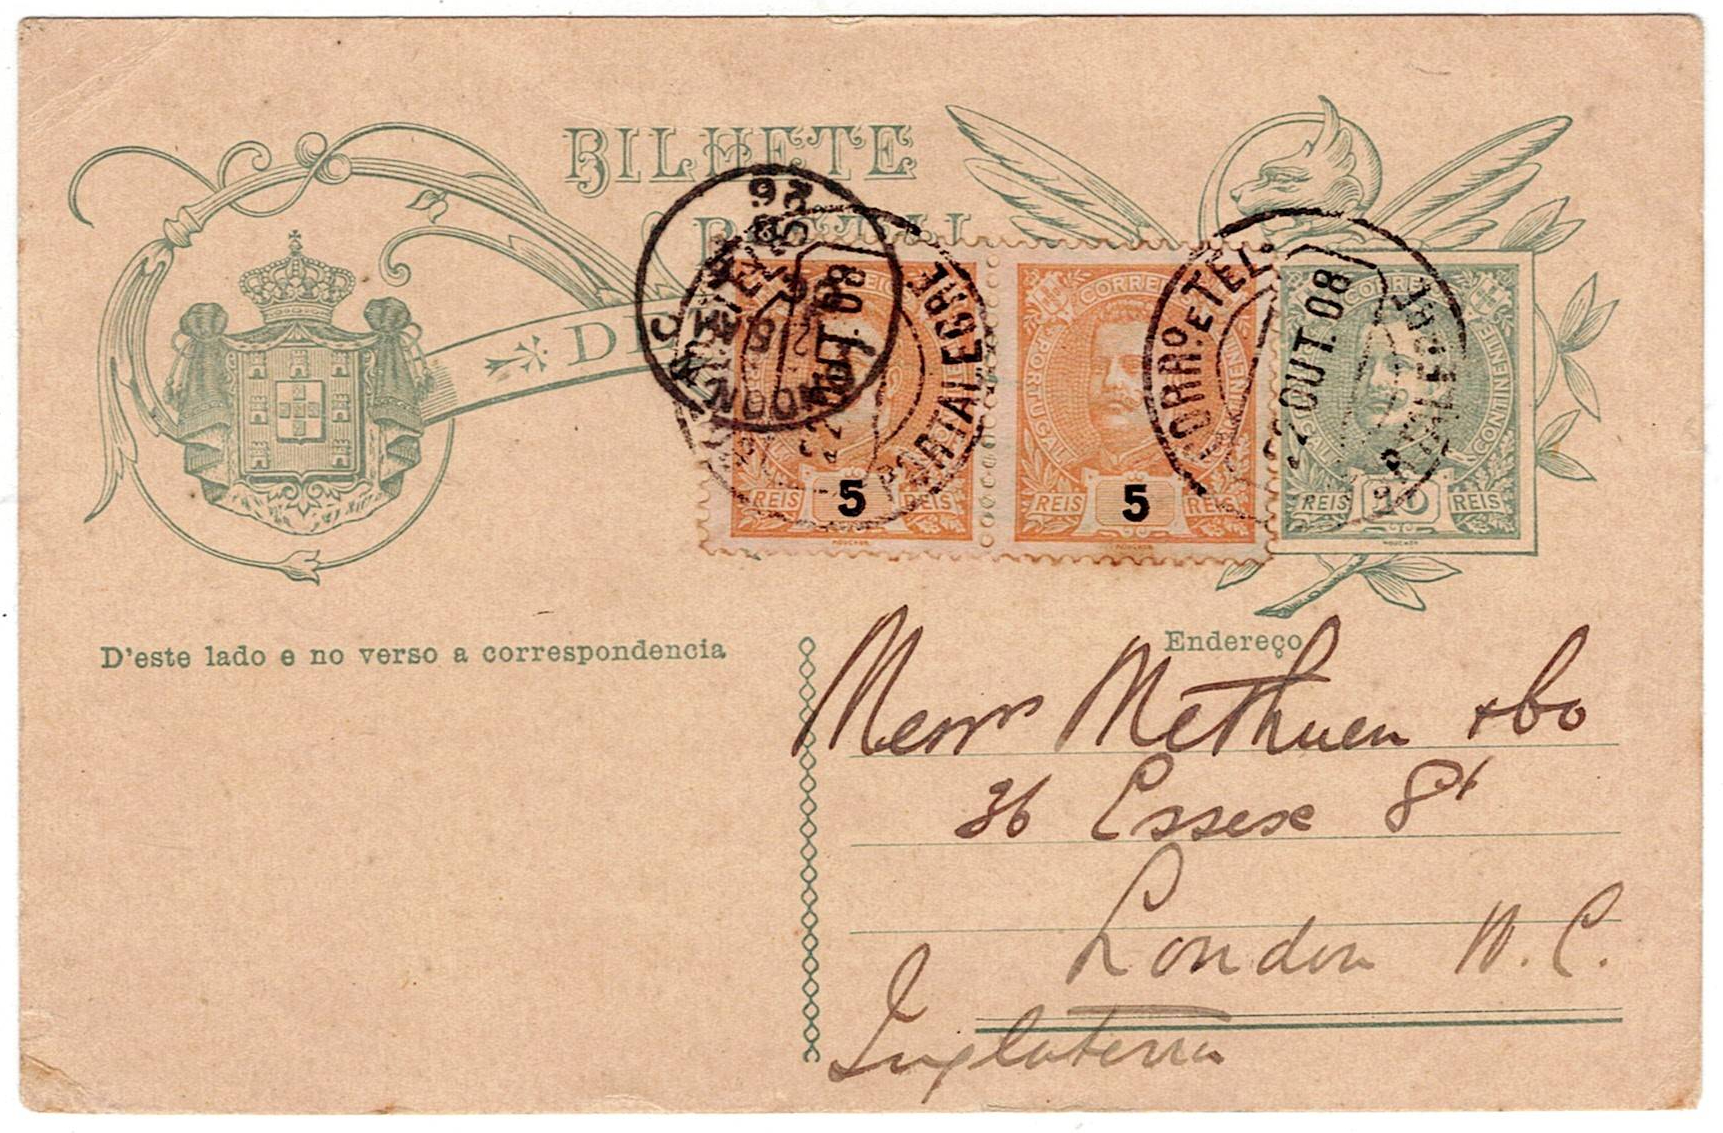 BILHETE
D'este lado e no verso a correspondencia
Endereço
CORRO. E TEL.
22 OUT. 08
PORTALEGRE
LONDON
REIS 5 REIS
CORREIOS
PORTUGAL
CONTINENTE
REIS 5 REIS
CORREIOS
PORTUGAL
CONTINENTE
REIS 10 REIS
Messrs Methuen & Co
36 Essex St
London W.C.
Inglaterra